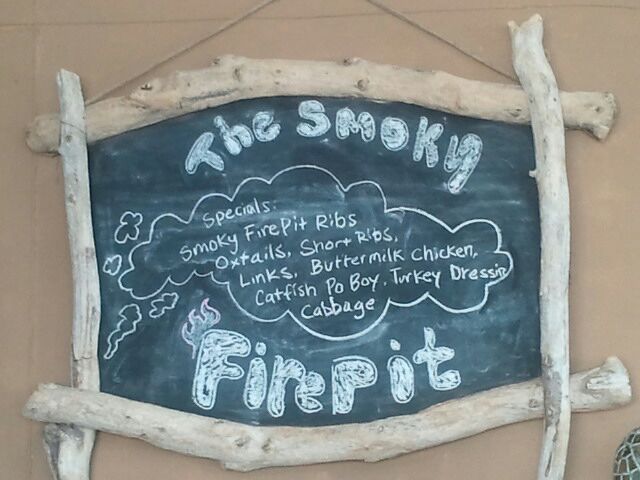 The Smoky
Specials:
Smoky FirePit Ribs
Oxtails, Short Ribs,
Links, Buttermilk Chicken,
Catfish Po Boy, Turkey Dressin
Cabbage
FirePit